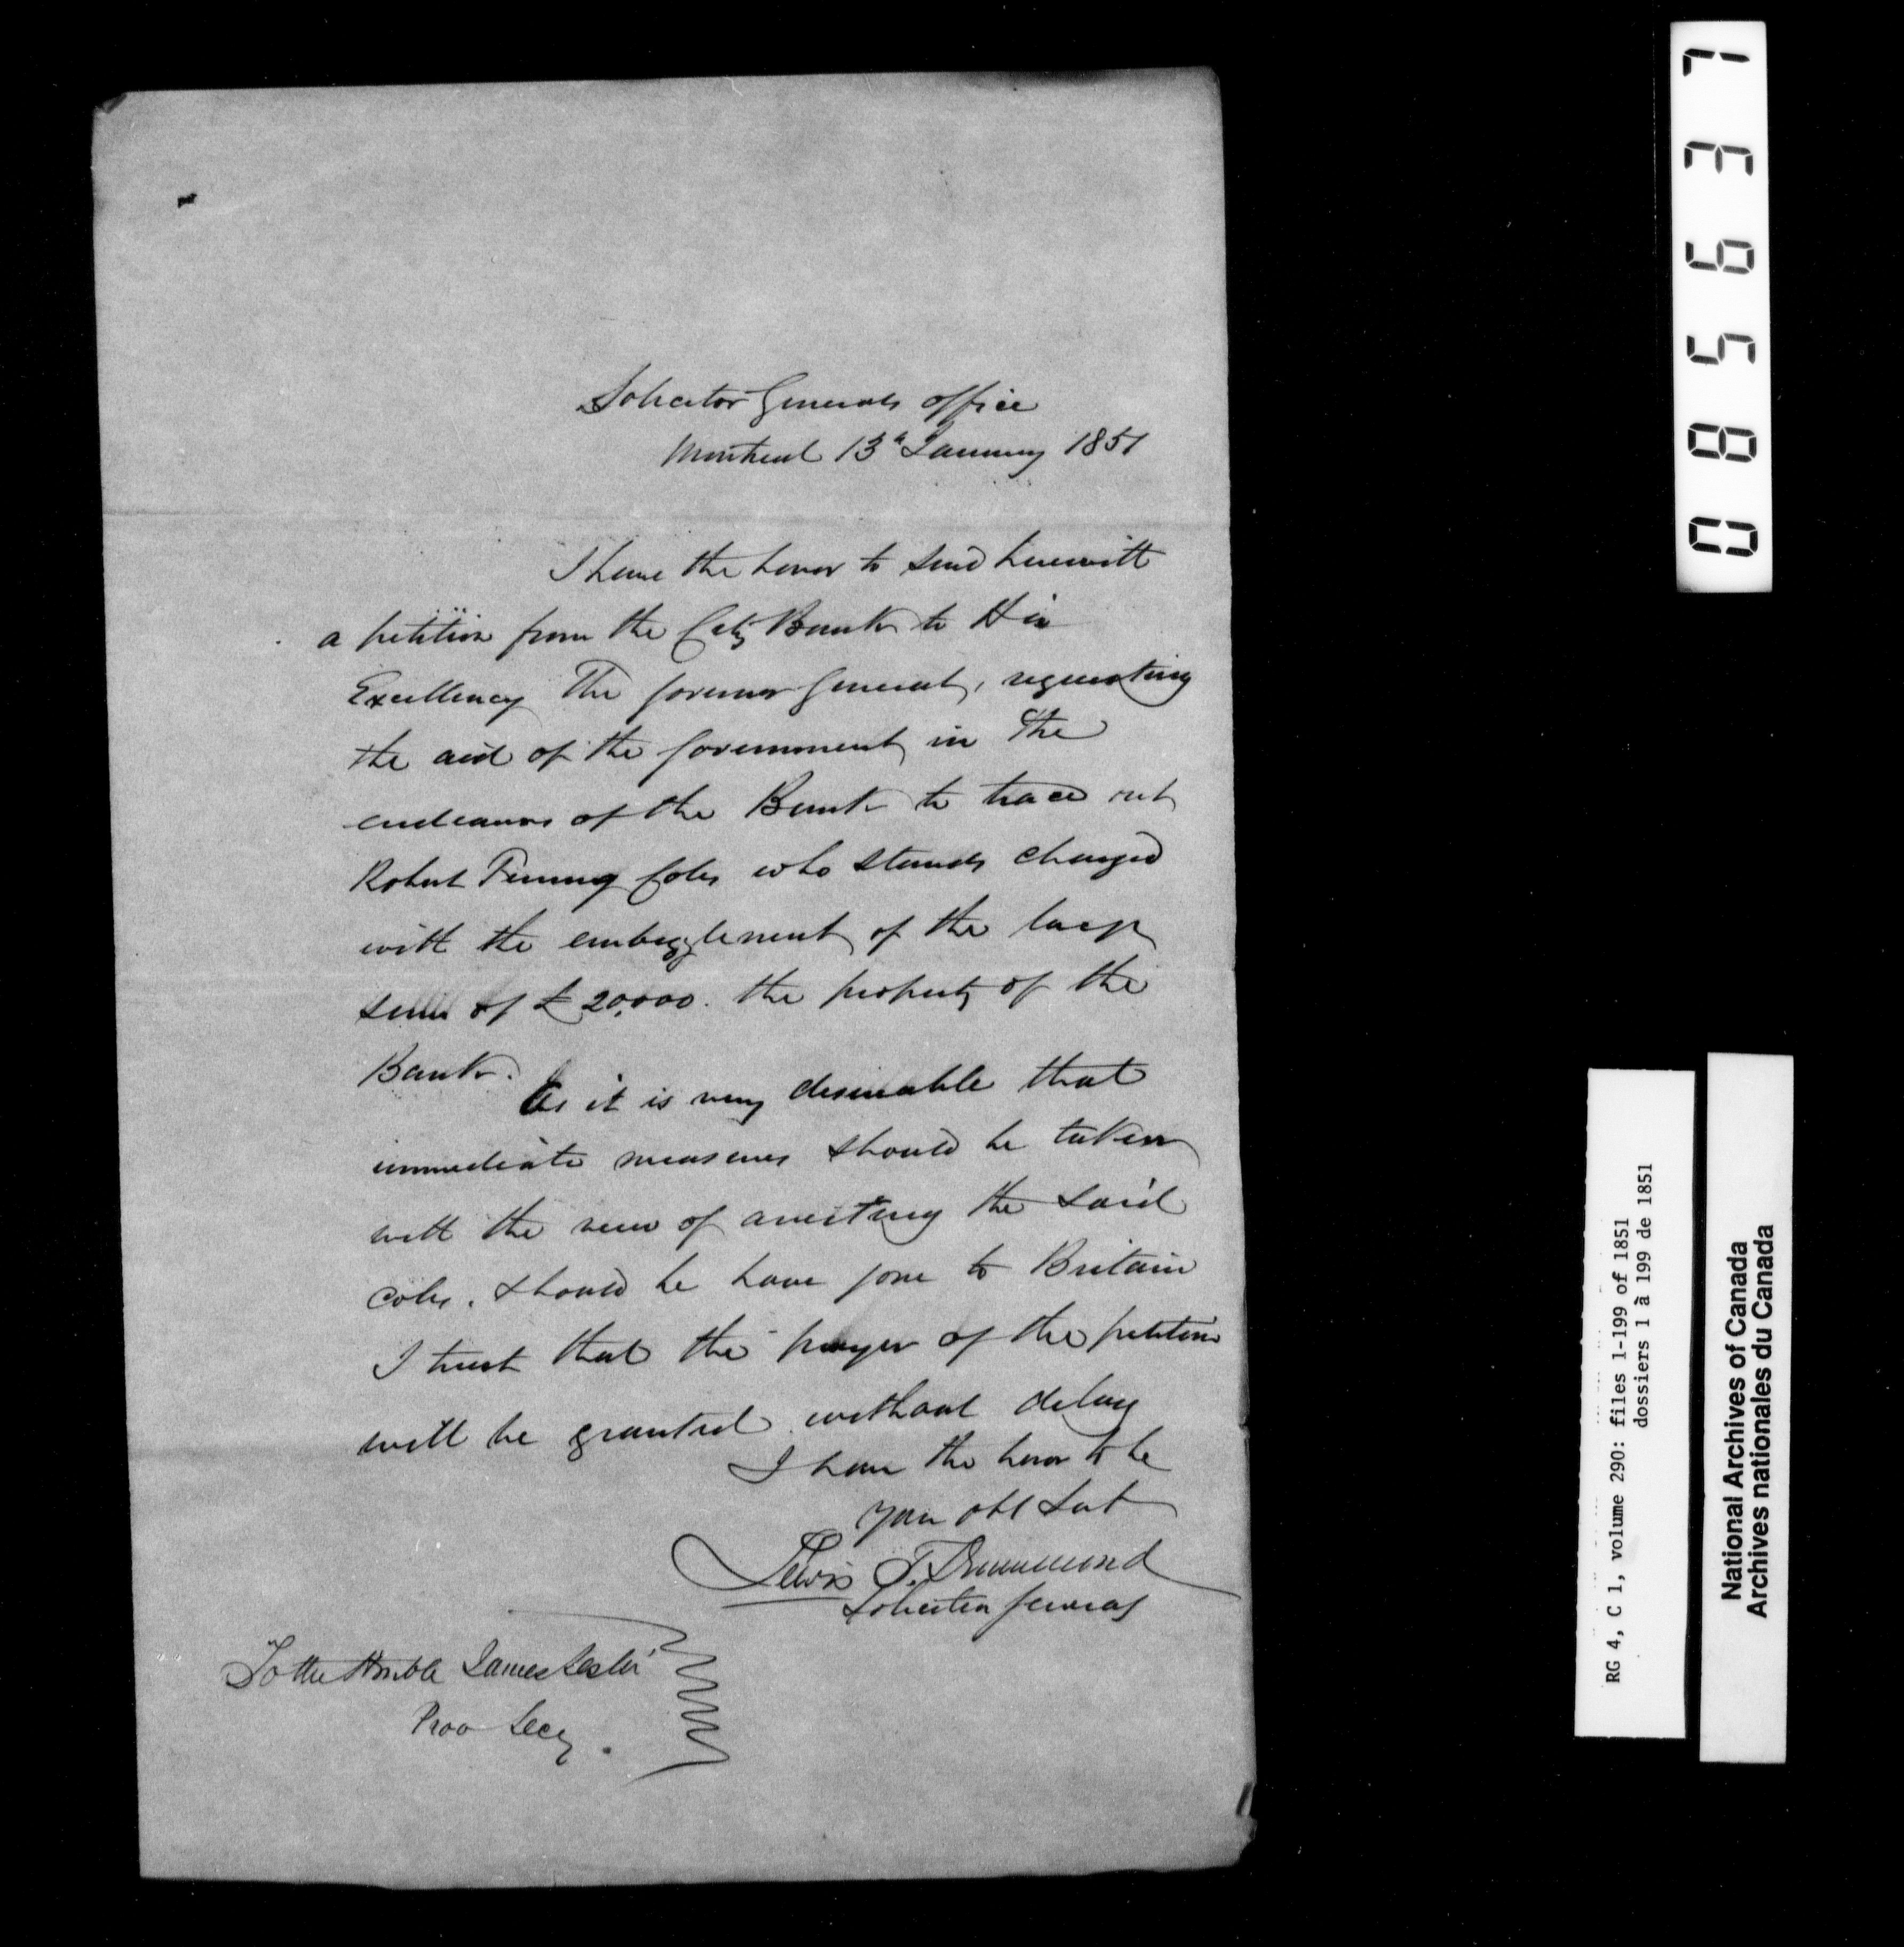 Solicitor Generals Office
Montreal 13th January 1851
I have the honor to send herewith
a petition from the City Bank to His
Excellency The Governor General, requesting
the aid of the Government in the
endeavors of the Bank to trace out
Robert Coles who stands charged
with the embezzlement of the large
sum of £20,000. the property of the
Bank.
As it is very desirable that
immediate measures should be taken
with the view of arresting the said
Coles, should he have gone to Britain
I trust that the prayer of the petition
will be granted without delay
I have the honor to be
your obt Svt
Lewis T. Drummond
Solicitor General
To the Honble James Leslie
Prov Secy.
085637
RG 4, C 1, volume 290: files 1-199 of 1851
dossiers 1 à 199 de 1851
National Archives of Canada
Archives nationales du Canada